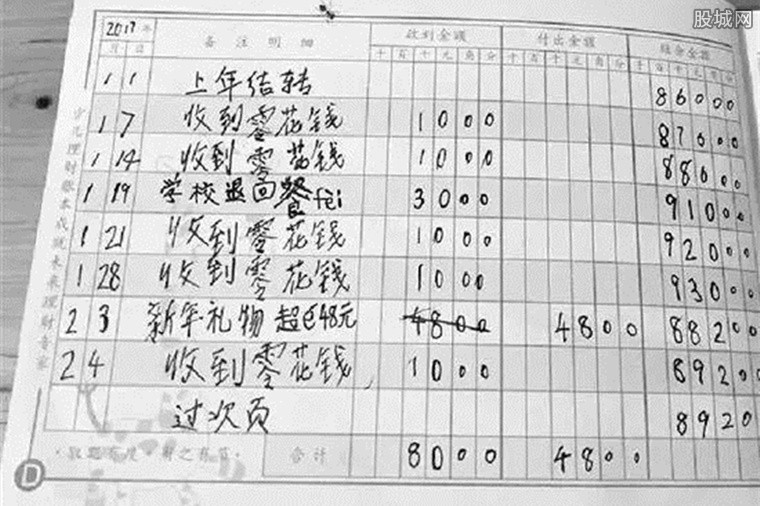 股城网
2017年 备注明细 收到金额 付出金额 结余金额
月 日 十 百 十 元 角 分 十 百 十 元 角 分 十 百 十 元 角 分
1 1 上年结转 86000
1 7 收到零花钱 1000 87000
1 14 收到零花钱 1000 88000
1 19 学校退回餐fei 3000 91000
1 21 收到零花钱 1000 92000
1 28 收到零花钱 1000 93000
2 3 新年礼物 超 48元 4800 4800 88200
2 4 收到零花钱, 1000 89200
过次页 8920
合计 8000 4800
D
少儿理财账本成就未来理财专家